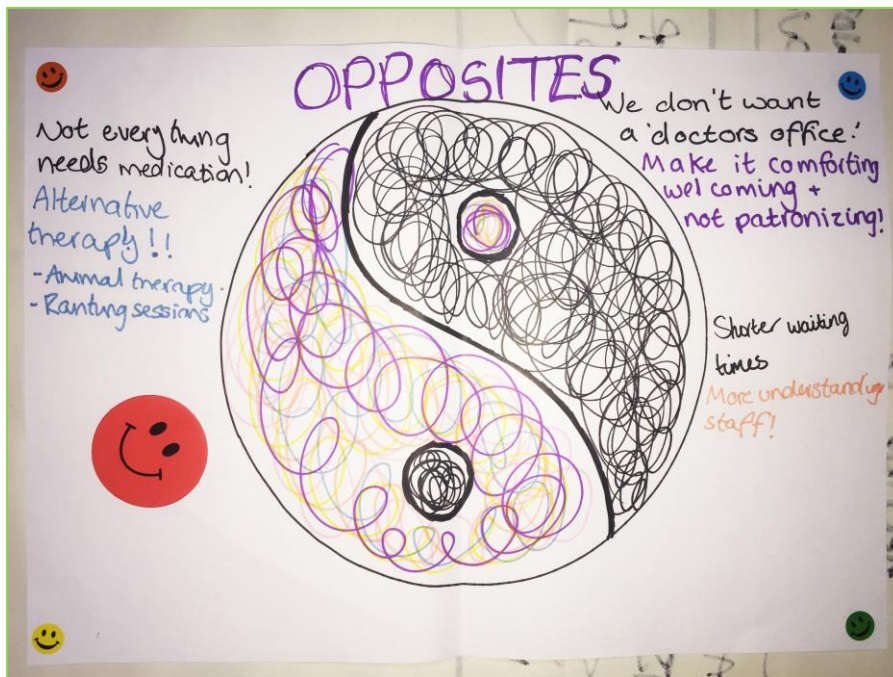 OPPOSITES
Not everything
needs medication!
Alternative
therapy!!
- Animal therapy.
- Ranting sessions
We don't want
a 'doctors office!'
Make it comforting
welcoming +
not patronizing!
Shorter waiting
times
More understanding
staff!